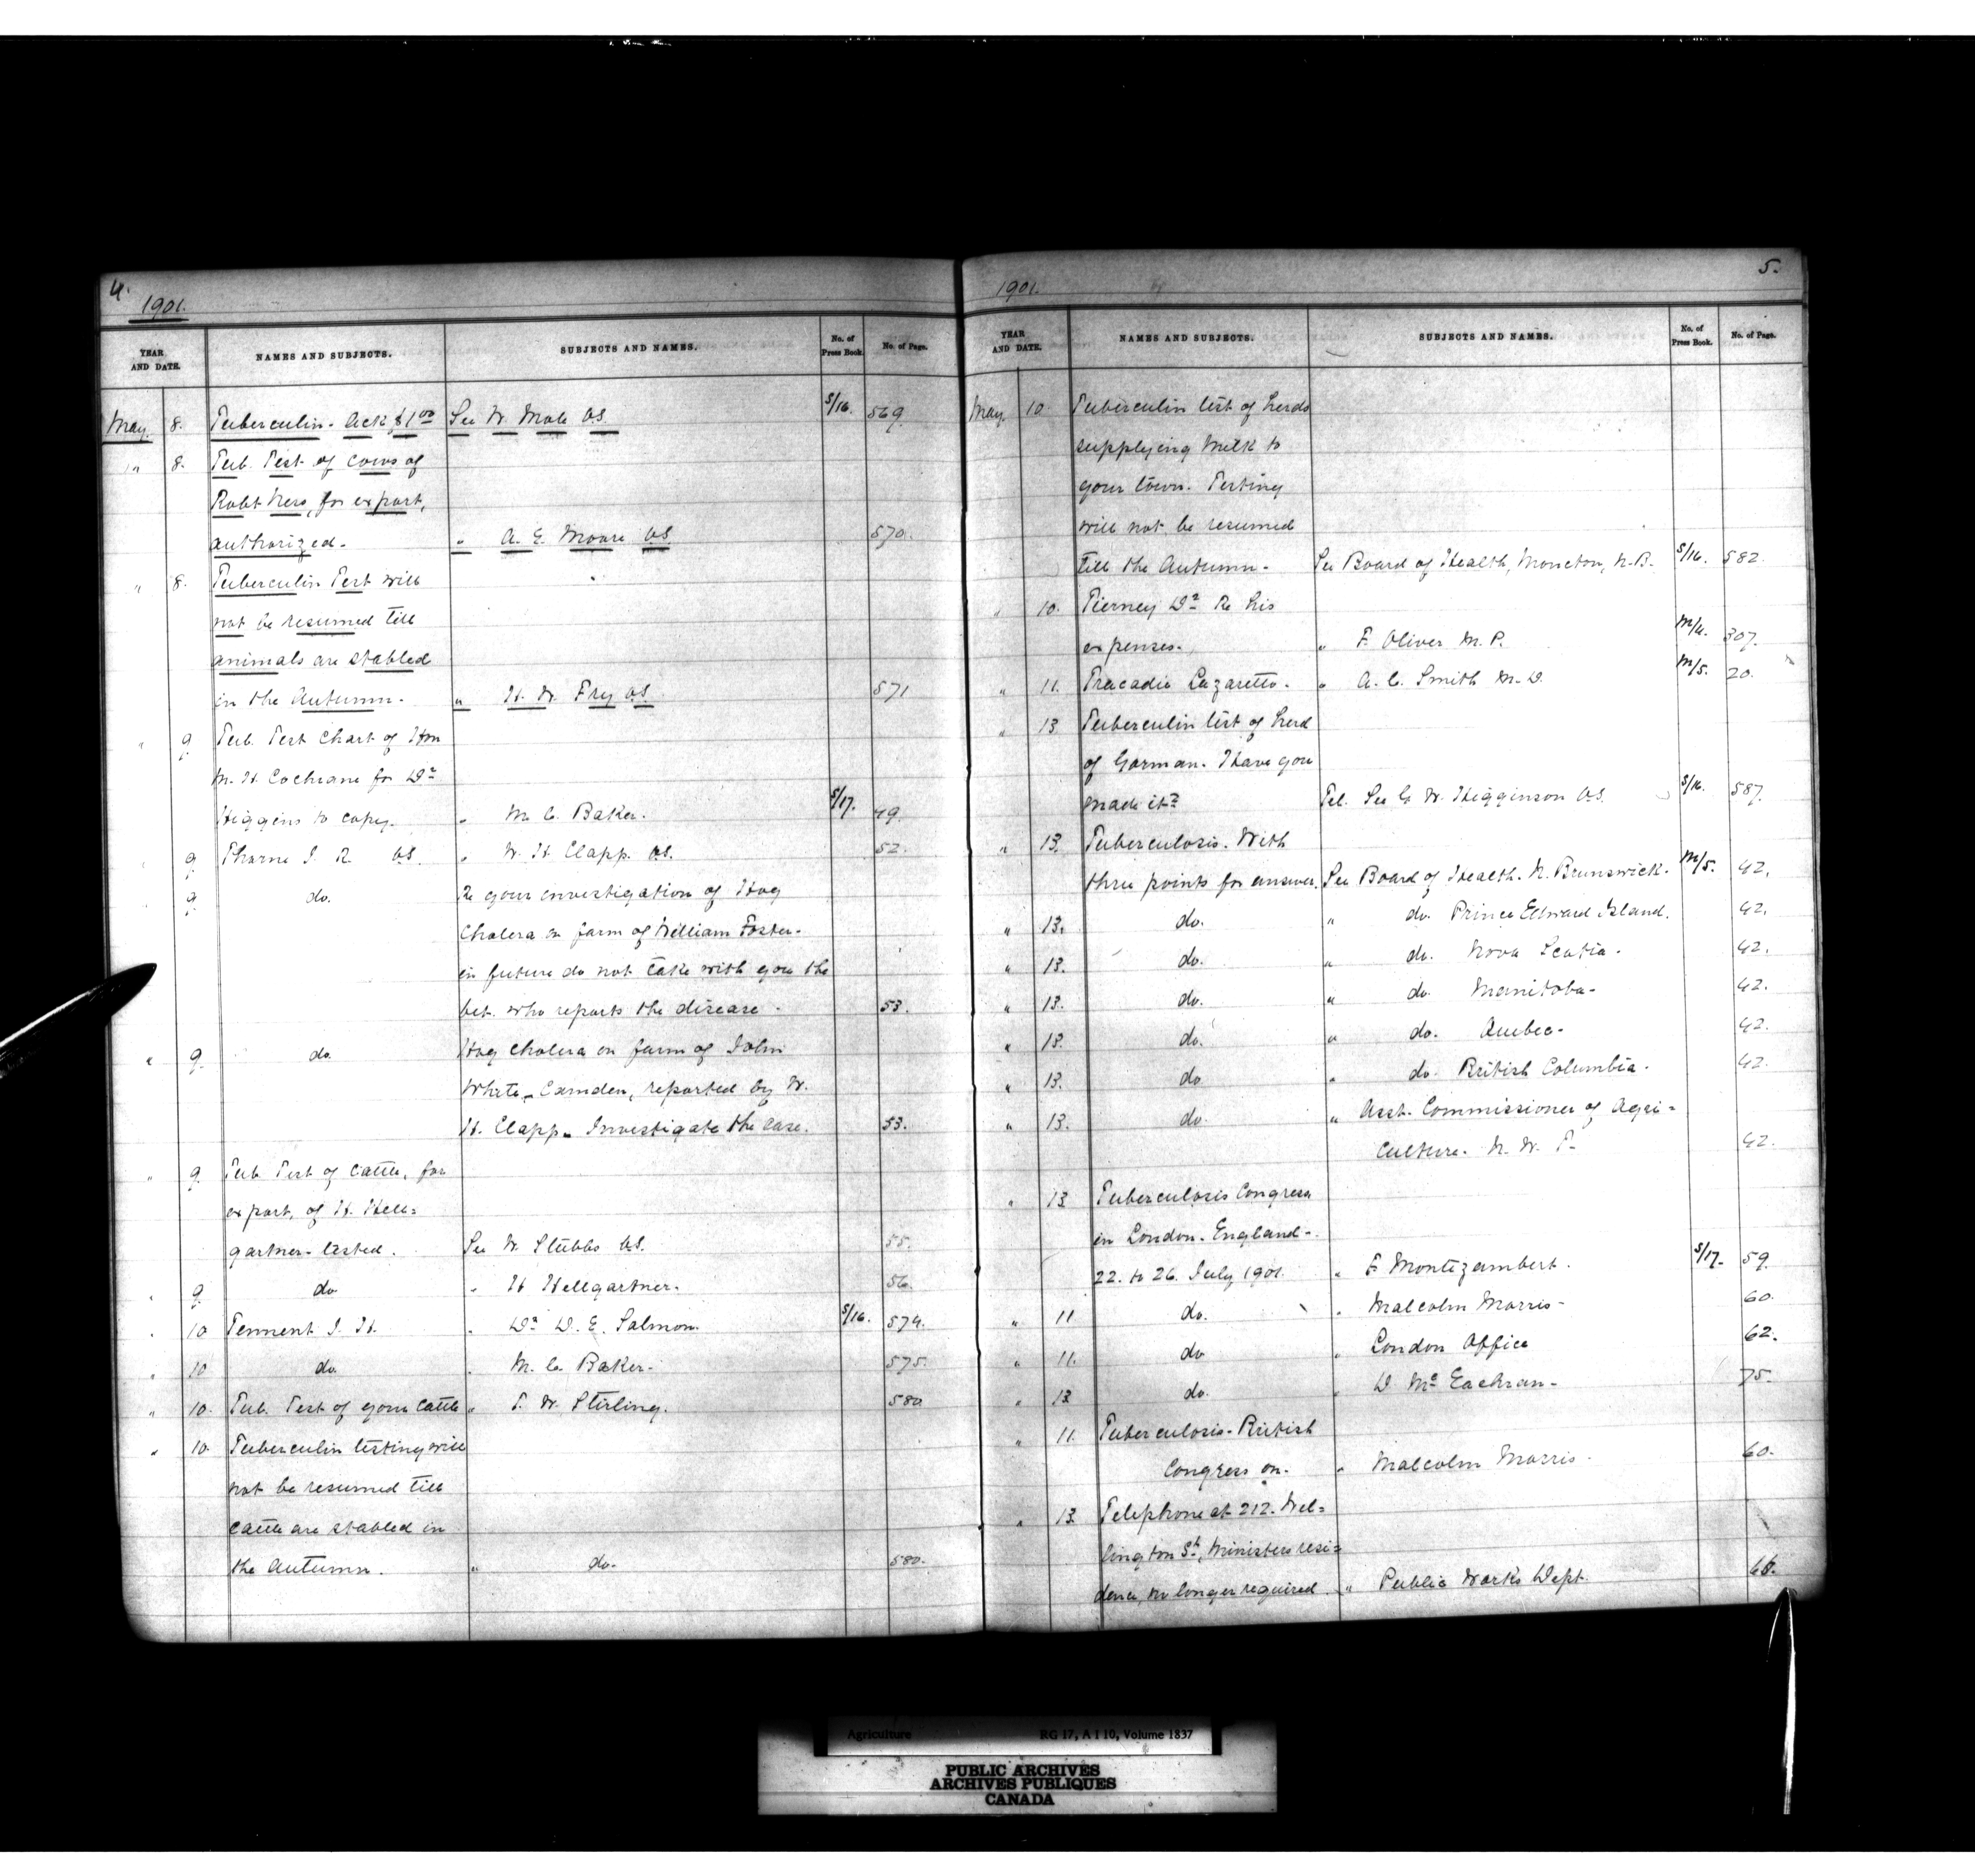 4.
1901.
YEAR AND DATE. NAMES AND SUBJECTS. SUBJECTS AND NAMES. No. of Press Book. No. of Page.
May. 8. Tuberculin - Ack $1.00 See W. Mole V.S. S/16. 569.
" 8. Tub. Test of Cows of
Robt Ness, for export,
authorized. " A. E. Moore V.S. 570.
" 8. Tuberculin Test will
not be resumed till
animals are stabled
in the Autumn. " H. W. Fry V.S. 571
" 9. Tub. Test Chart of Hon
M. H. Cochrane for Dr
Higgins to copy. " M. C. Baker. S/17. 49.
" 9. Thorne I. R. V.S. " W. H. Clapp. V.S. 52.
9. do. Re your investigation of Hog
Cholera on farm of William Foster-
in future do not take with you the
Vet. who reports the disease. 53.
" 9. do. Hog Cholera on farm of John
White, Camden, reported by W.
H. Clapp. Investigate the case. 53.
" 9. Tub. Test of Cattle, for
export, of H. Hell=
gartner - tested. See W. Stubbs V.S. 55.
" 9. do " H Hellgartner. 56.
" 10 Tennent J. H. " Dr D. E. Salmon. S/16. 574.
" 10 do " M. C. Baker. 575.
" 10. Tub. Test of your Cattle " T. W. Stirling. 580
" 10. Tuberculin testing will
not be resumed till
Cattle are stabled in
the Autumn. " do. 580.
5.
1901.
YEAR AND DATE. NAMES AND SUBJECTS. SUBJECTS AND NAMES. No. of Press Book. No. of Page.
May. 10. Tuberculin test of herds
supplying milk to
your town. Testing
will not be resumed
till the Autumn. See Board of Health, Moncton, N.B. S/16. 582.
" 10. Tierney Dr Re his
expenses. " F. Oliver M.P. M/4. 307.
" 11. Tracadie Lazaretto. " A. C. Smith M.D. M/5. 20.
" 13 Tuberculin test of herd
of Gorman. Have you
made it? Tel. See G. W. Higginson V.S. S/16. 587.
" 13. Tuberculosis. With
three points for answer. See Board of Health. N. Brunswick. M/5. 42.
" 13. do. " do. Prince Edward Island. 42.
" 13. do. " do. Nova Scotia. 42.
" 13. do. " do. Manitoba. 42.
" 13. do. " do. Quebec. 42.
" 13. do " do. British Columbia. 42.
" 13. do. " Asst. Commissioner of Agri=
culture. N. W. T. 42.
" 13 Tuberculosis Congress
in London. England.
22. to 26. July 1901. " F Montizambert. S/17. 59.
" 11 do. " Malcolm Morris. 60.
" 11. do " London Office 62.
" 13 do. " D. McEachran. 75.
" 11. Tuberculosis - British
Congress on. " Malcolm Morris. 60.
" 13. Telephone at 212. Wel=
lington St, Ministers resi=
dence, no longer required. " Public Works Dept.
Agriculture RG 17, A I 10, Volume 1837
PUBLIC ARCHIVES
ARCHIVES PUBLIQUES
CANADA